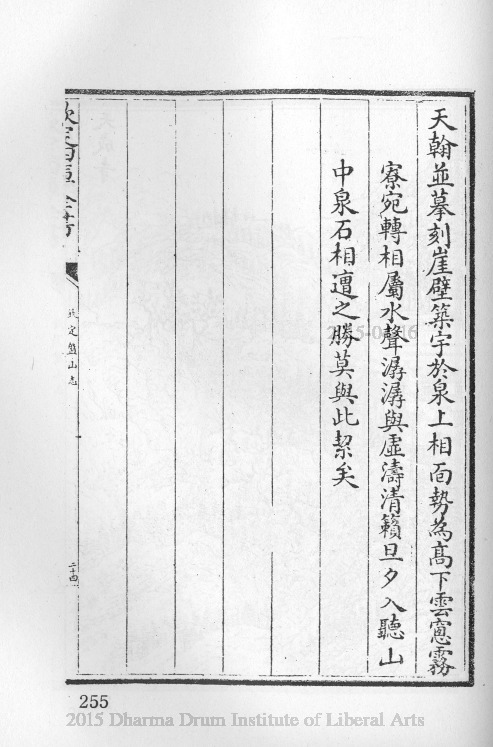 天翰並摹刻崖壁築宇於泉上相面勢為高下雲窻霧
寮宛轉相屬水聲潺潺與虛濤清籟旦夕入聽山
中泉石相遭之勝莫與此絜矣
欽定四庫全書
欽定盤山志
二十四
255
2015 Dharma Drum Institute of Liberal Arts